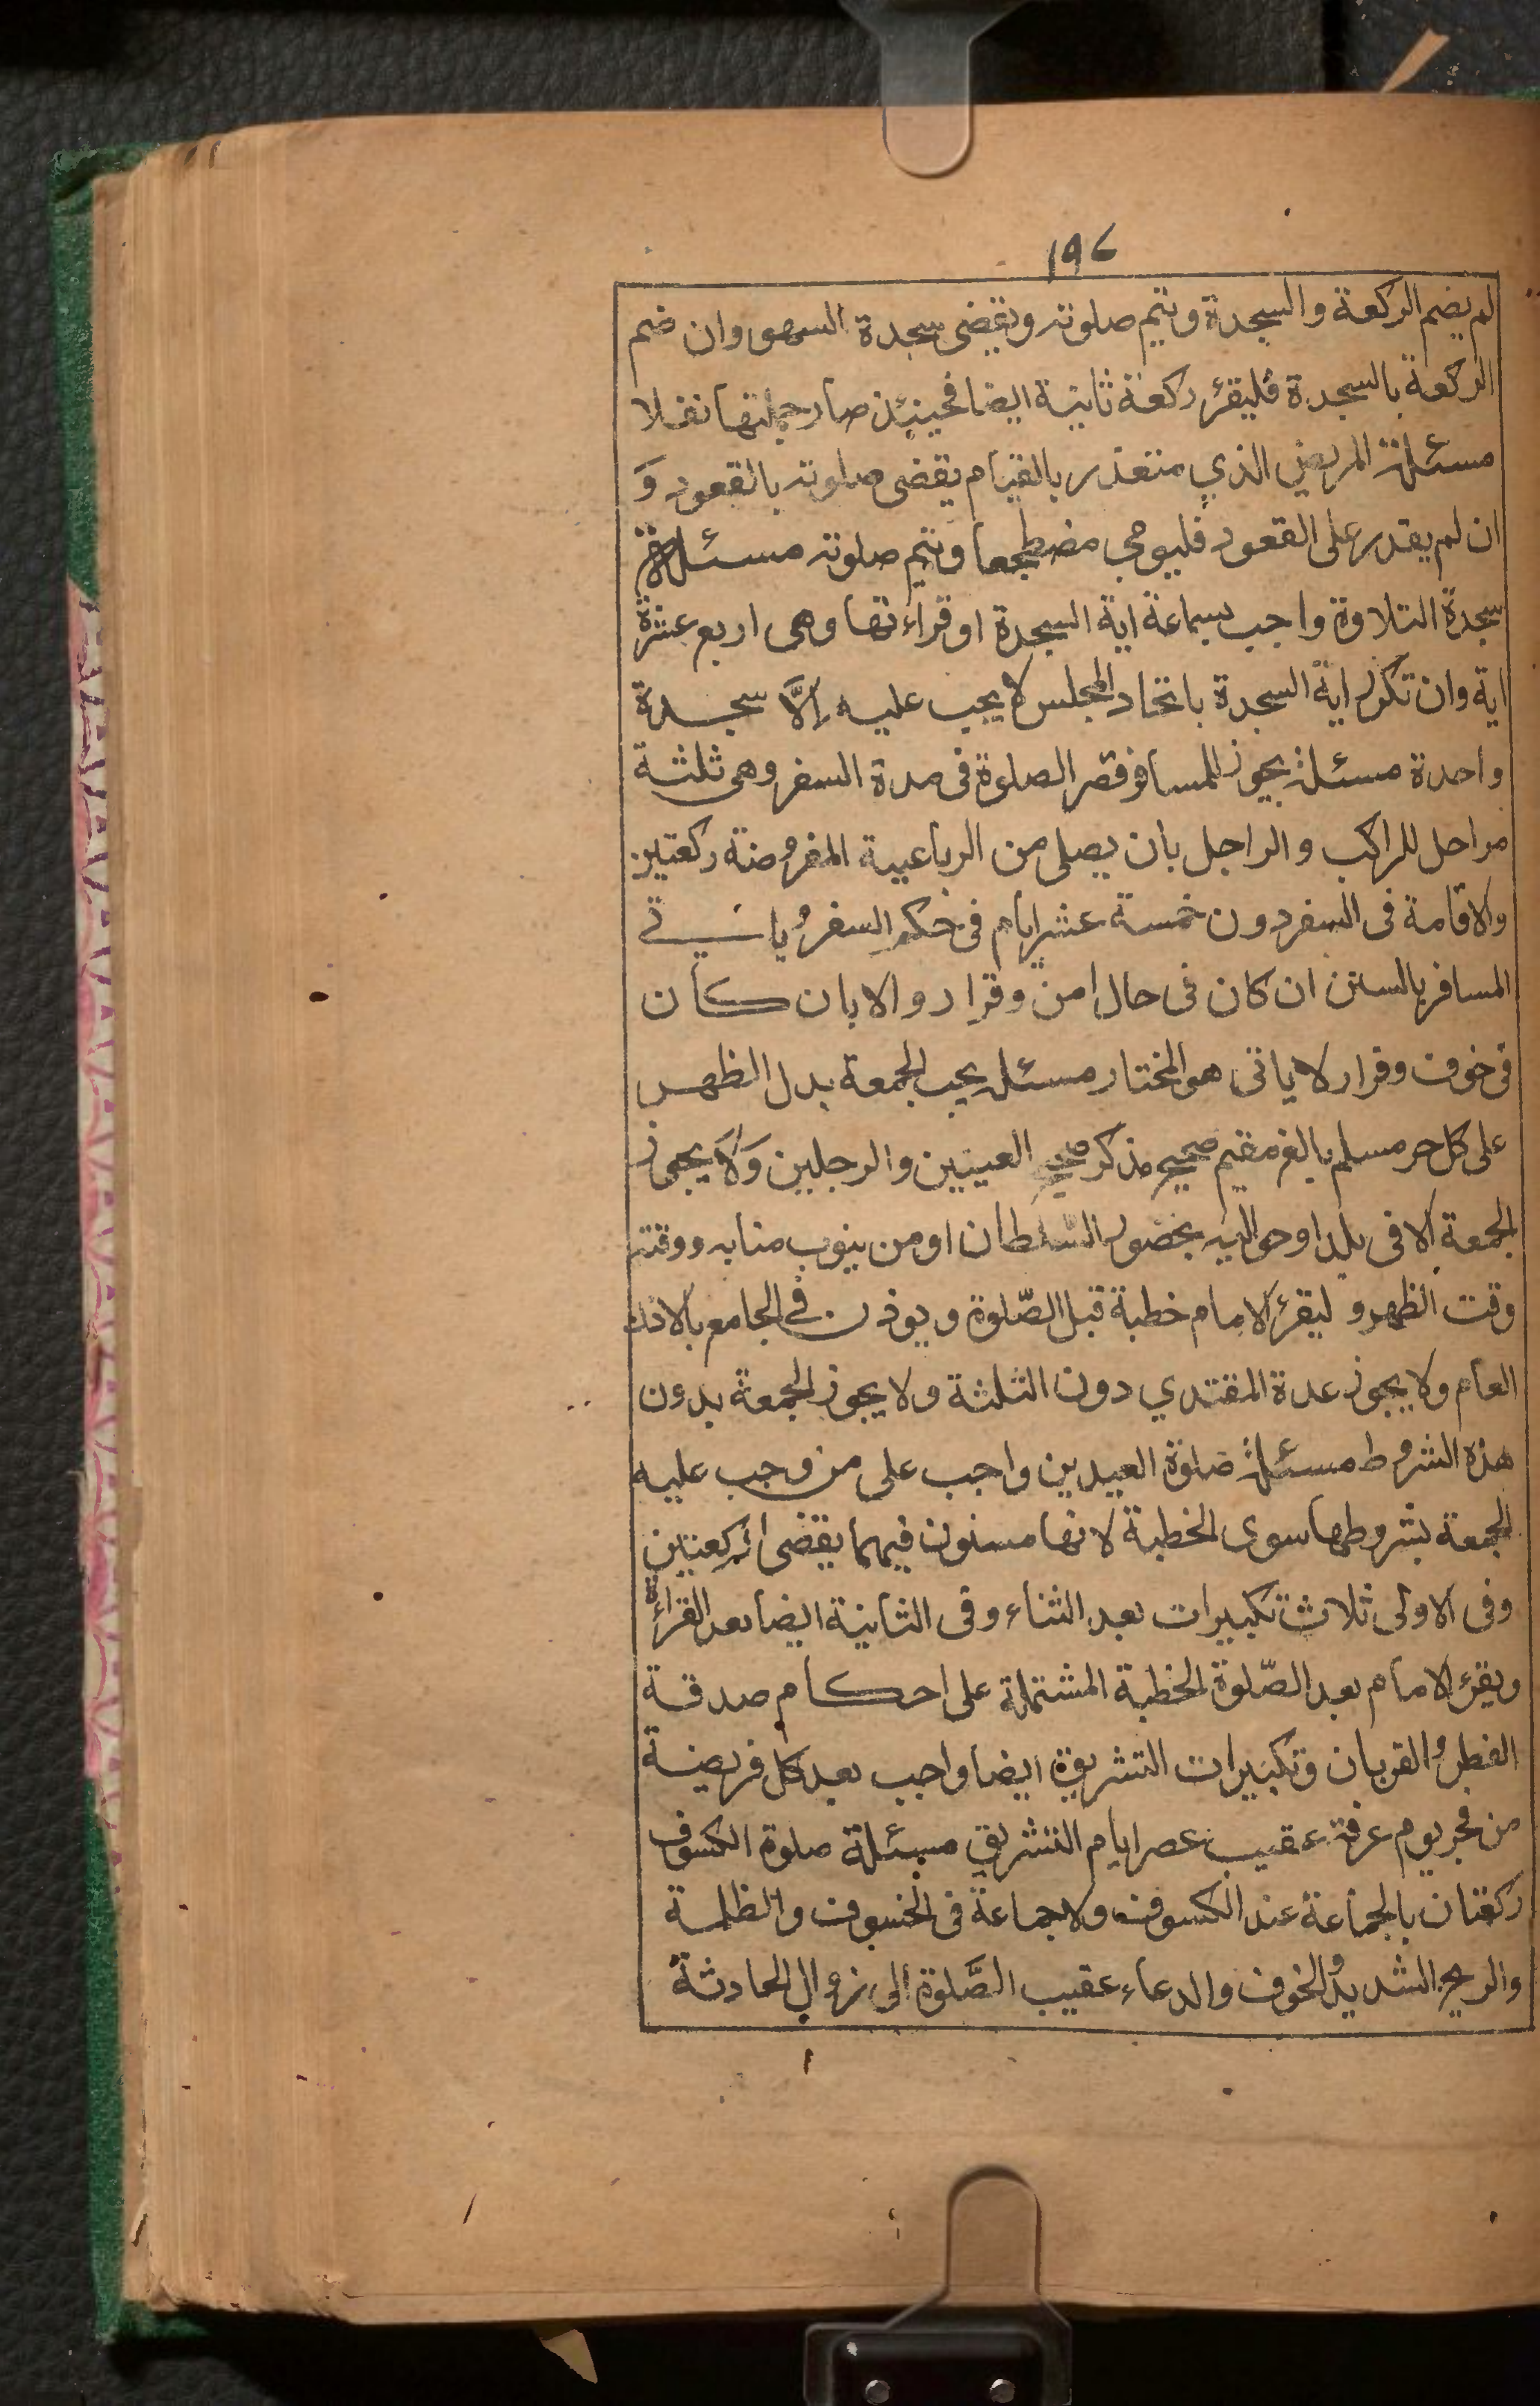 ١٩٤
لم يضم الركعة والسجدة ويتم صلوته ويقضى سجدة السهو وان ضم
الركعة بالسجدة فليقرئ ركعة ثانية ايضا فحينئذ صار جملتها نفلا
مسئلة المريض الذي متعذر بالقيام يقضى صلوته بالقعود وَ
ان لم يقدر على القعود فليومي مضطجعا ويتم صلوته مسئلة
سجدة التلاوة واجب بسماعة اية السجدة او قراءتها وهى اربع عشرة
اية وان تكرر اية السجدة باتحاد المجلس لا يجب عليه اِلَّا سجدة
واحدة مسئلة يجوز للمسافر قصر الصلوة فى مدة السفر وهى ثلثة
مراحل للراكب والراجل بان يصلى من الرباعيية المفروضة ركعتين
والاقامة فى السفر دون خمسة عشر ايام فى حكم السفر وياتى
المسافر بالسنن ان كان فى حال امن وقرار والا بان كان
فى خوف وفرار لا ياتى هو المختار مسئله يجب الجمعة بدل الظهر
على كل حر مسلم بالغ مقيم صحيح مذكر صحيح العينين والرجلين وَلَا يجوز
الجمعة الا فى بلد او حواليه بحضور السّلطان او من ينوب منابه ووقته
وقت الظهر وليقرئ الامام خطبة قبل الصّلوة ويوذن فى الجامع بالاذن
العام ولا يجوز عدة المقتدي دون الثلثة ولا يجوز الجمعة بدون
هذه الشروط مسئلة صلوة العيدين واجب على من وجب عليه
الجمعة بشروطها سوى الخطبة لانها مسنون فيهما يقضى الركعتين
وفى الاولى ثلاث تكبيرات بعد الثناء وفى الثانية ايضا بعد القراءة
ويقرئ الامام بعد الصّلوة الخطبة المشتملة على احكام صدقة
الفطر والقربان وتكبيرات التشريق ايضا واجب بعد كل فريضة
من فجر يوم عرفة عقيب عصر ايام التشريق مسئلة صلوة الكسوف
ركعتان بالجماعة عند الكسوف ولا جماعة فى الخسوف والظلمة
والريح الشديد والخوف والدعاء عقيب الصَّلوة الى زوال الحادثة